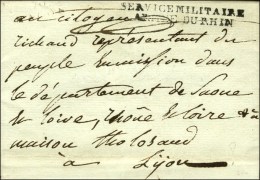 SERVICE MILITAIRE
ARMÉE DU RHIN
au citoyen
richaud representant du
peuple en mission dans
le département de Saone
et loire, rhône et loire &a
maison tholozand
à Lyon